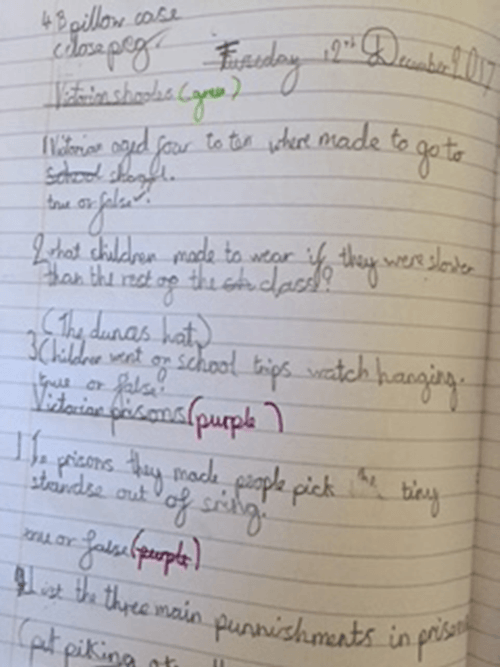 48 pillow case
close peg
Tuesday 12th December 2017
Victorian shools (green)
1 Victorian aged four to ten where made to go to
School shool.
true or false?
2 what children made to wear if they were slower
than the rest of the class?
(The dunas hat)
3 Children went on school trips watch hanging.
true or false?
Victorian prisons (purple)
1 In prisons they made people pick the tiny
strandse out of sring.
true or false (purple)
2 List the three main punnishments in prison
(pit piking